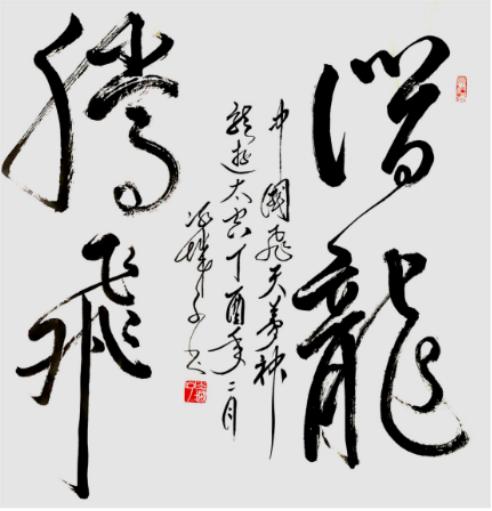 潛龍
中國飛天夢神
龍遊太空丁酉年二月
騰飛